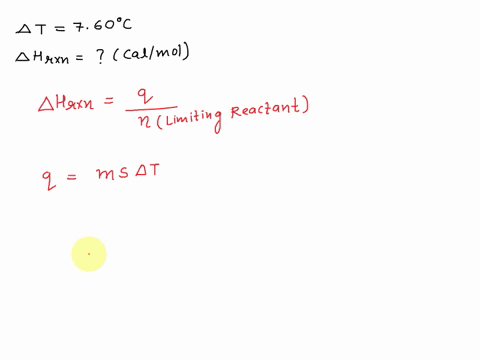 ΔT = 7.60°C
ΔHrxn = ? (Cal/mol)
ΔHrxn = q / n (Limiting Reactant)
q = m s ΔT